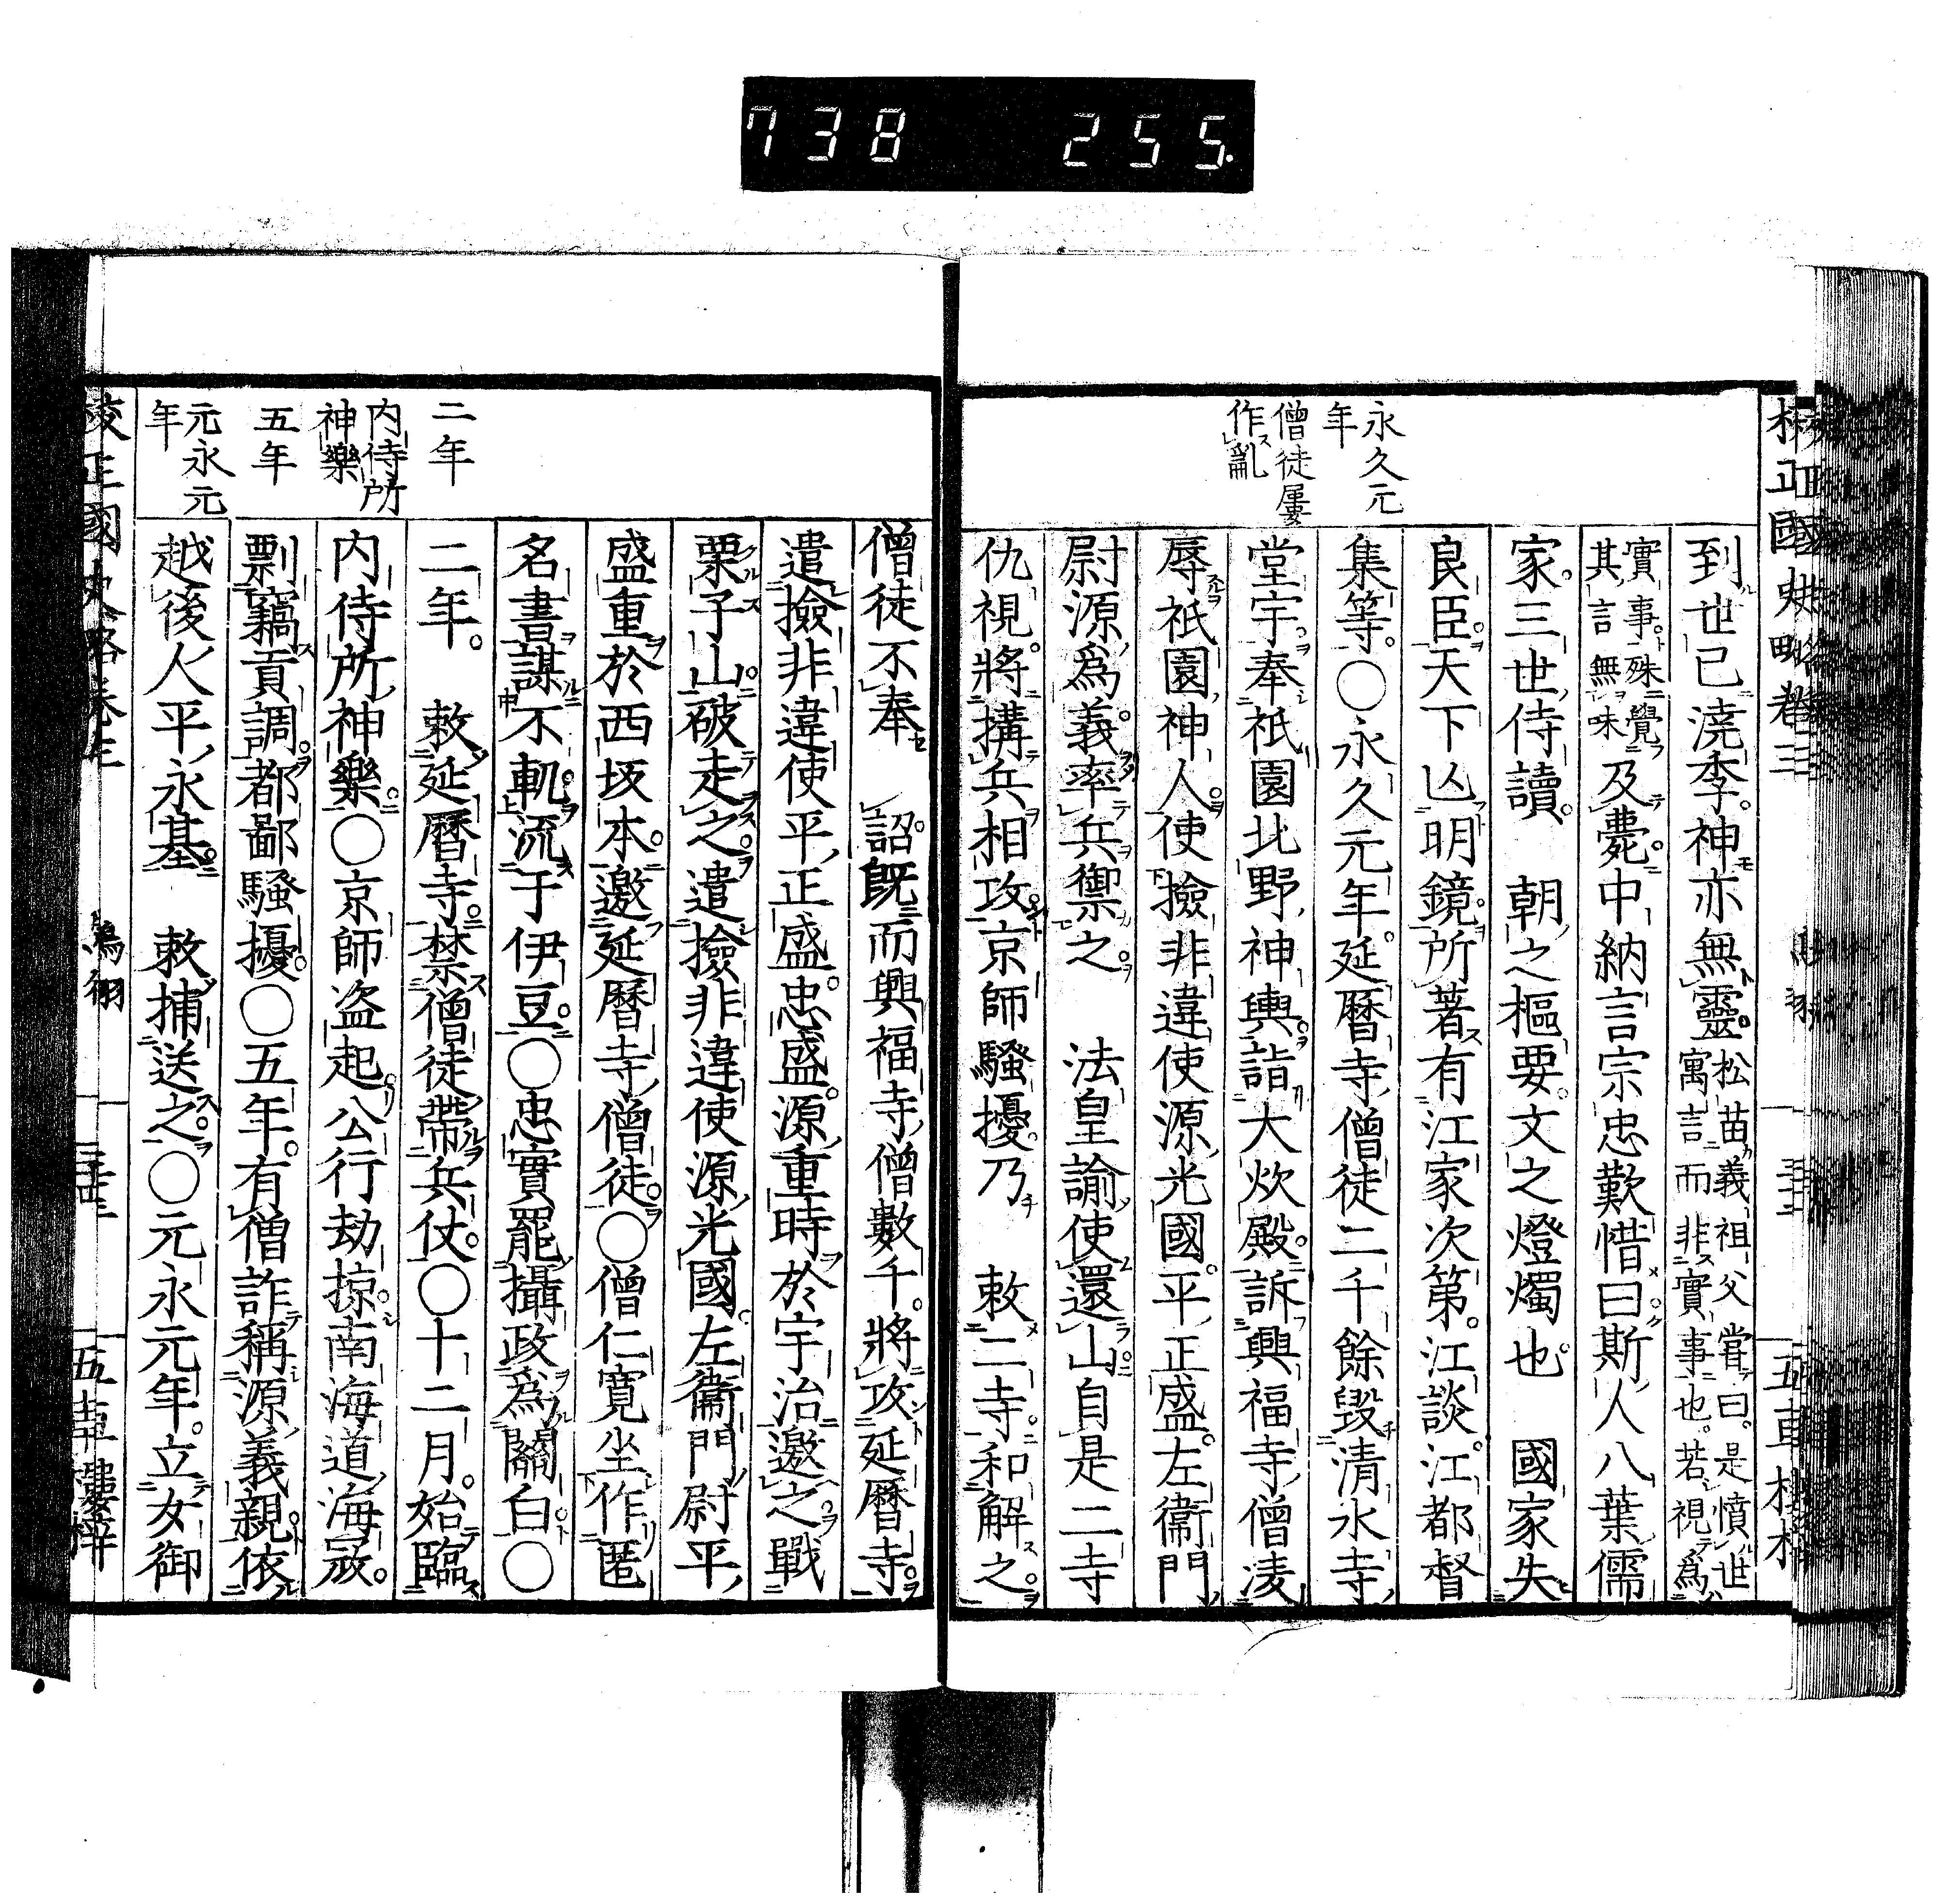 738 255.
校正國史略卷三
五車樓梓
永久元
年
僧徒屢
作亂
到世已澆季。神亦無靈。松苗義祖父嘗曰。是憤世
寓言而非實事也。若視為
實事。殊覺
其言無味及薨。中納言宗忠歎惜曰斯人八葉儒
家。三世侍讀。朝之樞要。文之燈燭也。國家失
良臣。天下亾明鏡。所著有江家次第。江談。江都督
集等。○永久元年。延曆寺僧徒二千餘毀清水寺
堂宇。奉祇園北野神輿。詣大炊殿。訴興福寺僧凌
辱祇園神人。使撿非違使源光國。平正盛。左衞門
尉源為義。率兵禦之。法皇諭使還山。自是二寺
仇視。將搆兵相攻。京師騷擾。乃敕二寺和解之。
二年
内侍所
神樂
五年
元永元
年
僧徒不奉詔。既而興福寺僧數千。將攻延曆寺。
遣撿非違使平正盛。忠盛。源重時於宇治邀之。戰
栗子山。破走之。遣撿非違使源光國。左衞門尉平
盛重於西坂本。邀延曆寺僧徒。○僧仁寬坐作匿
名書謀不軌。流于伊豆。○忠實罷攝政為關白。○
二年。敕延曆寺。禁僧徒帶兵仗。○十二月。始臨
内侍所神樂。○京師盜起。公行劫掠。南海道海冦。
剽竊貢調。都鄙騷擾。○五年。有僧詐稱源義親。依
越後人平永基。敕捕送之。○元永元年。立女御
校正國史略卷三
鳥羽
五車樓梓